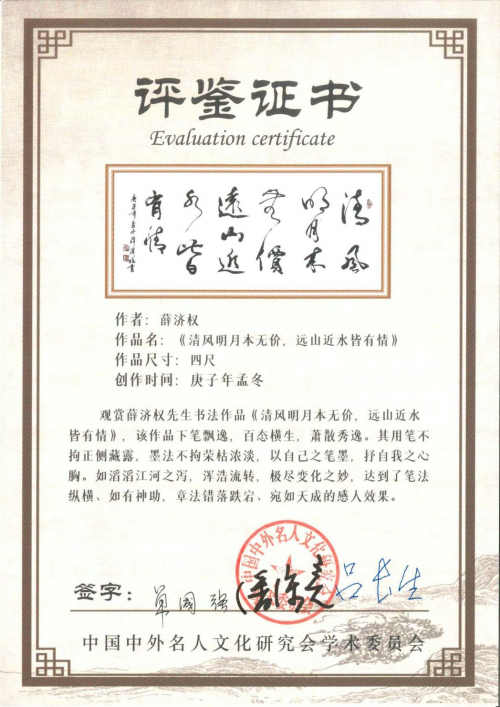 评鉴证书
Evaluation certificate
清风
明月本
无價
遠山近
水皆
有情
作者：薛济权
作品名：《清风明月本无价，远山近水皆有情》
作品尺寸：四尺
创作时间：庚子年孟冬
观赏薛济权先生书法作品《清风明月本无价，远山近水
皆有情》，该作品下笔飘逸，百态横生，萧散秀逸。其用笔不
拘正侧藏露，墨法不拘荣枯浓淡，以自己之笔墨，抒自我之心
胸。如滔滔江河之泻，浑浩流转，极尽变化之妙，达到了笔法
纵横、如有神助，章法错落跌宕、宛如天成的感人效果。
中国中外名人文化研究会
签字：单国强 吕长生
中国中外名人文化研究会学术委员会